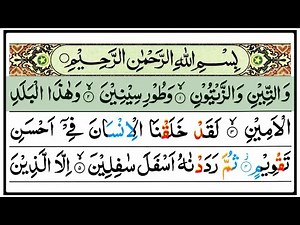 بِسْمِ اللهِ الرَّحْمٰنِ الرَّحِيْمِ
وَالتِّيْنِ وَالزَّيْتُوْنِ ۙ۱ وَطُوْرِ سِيْنِيْنَ ۙ۲ وَهٰذَا الْبَلَدِ
الْاَمِيْنِ ۙ۳ لَقَدْ خَلَقْنَا الْاِنْسَانَ فِيْٓ اَحْسَنِ
تَقْوِيْمٍ ۙ۴ ثُمَّ رَدَدْنٰهُ اَسْفَلَ سٰفِلِيْنَ ۙ۵ اِلَّا الَّذِيْنَ